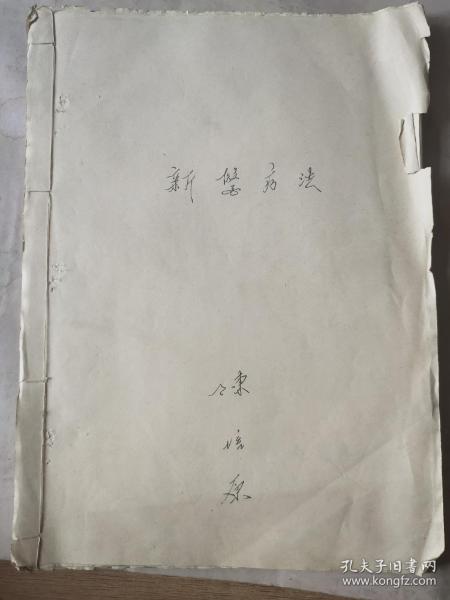 新医病法
陳
培
原
孔夫子旧书网
www.kongfz.com